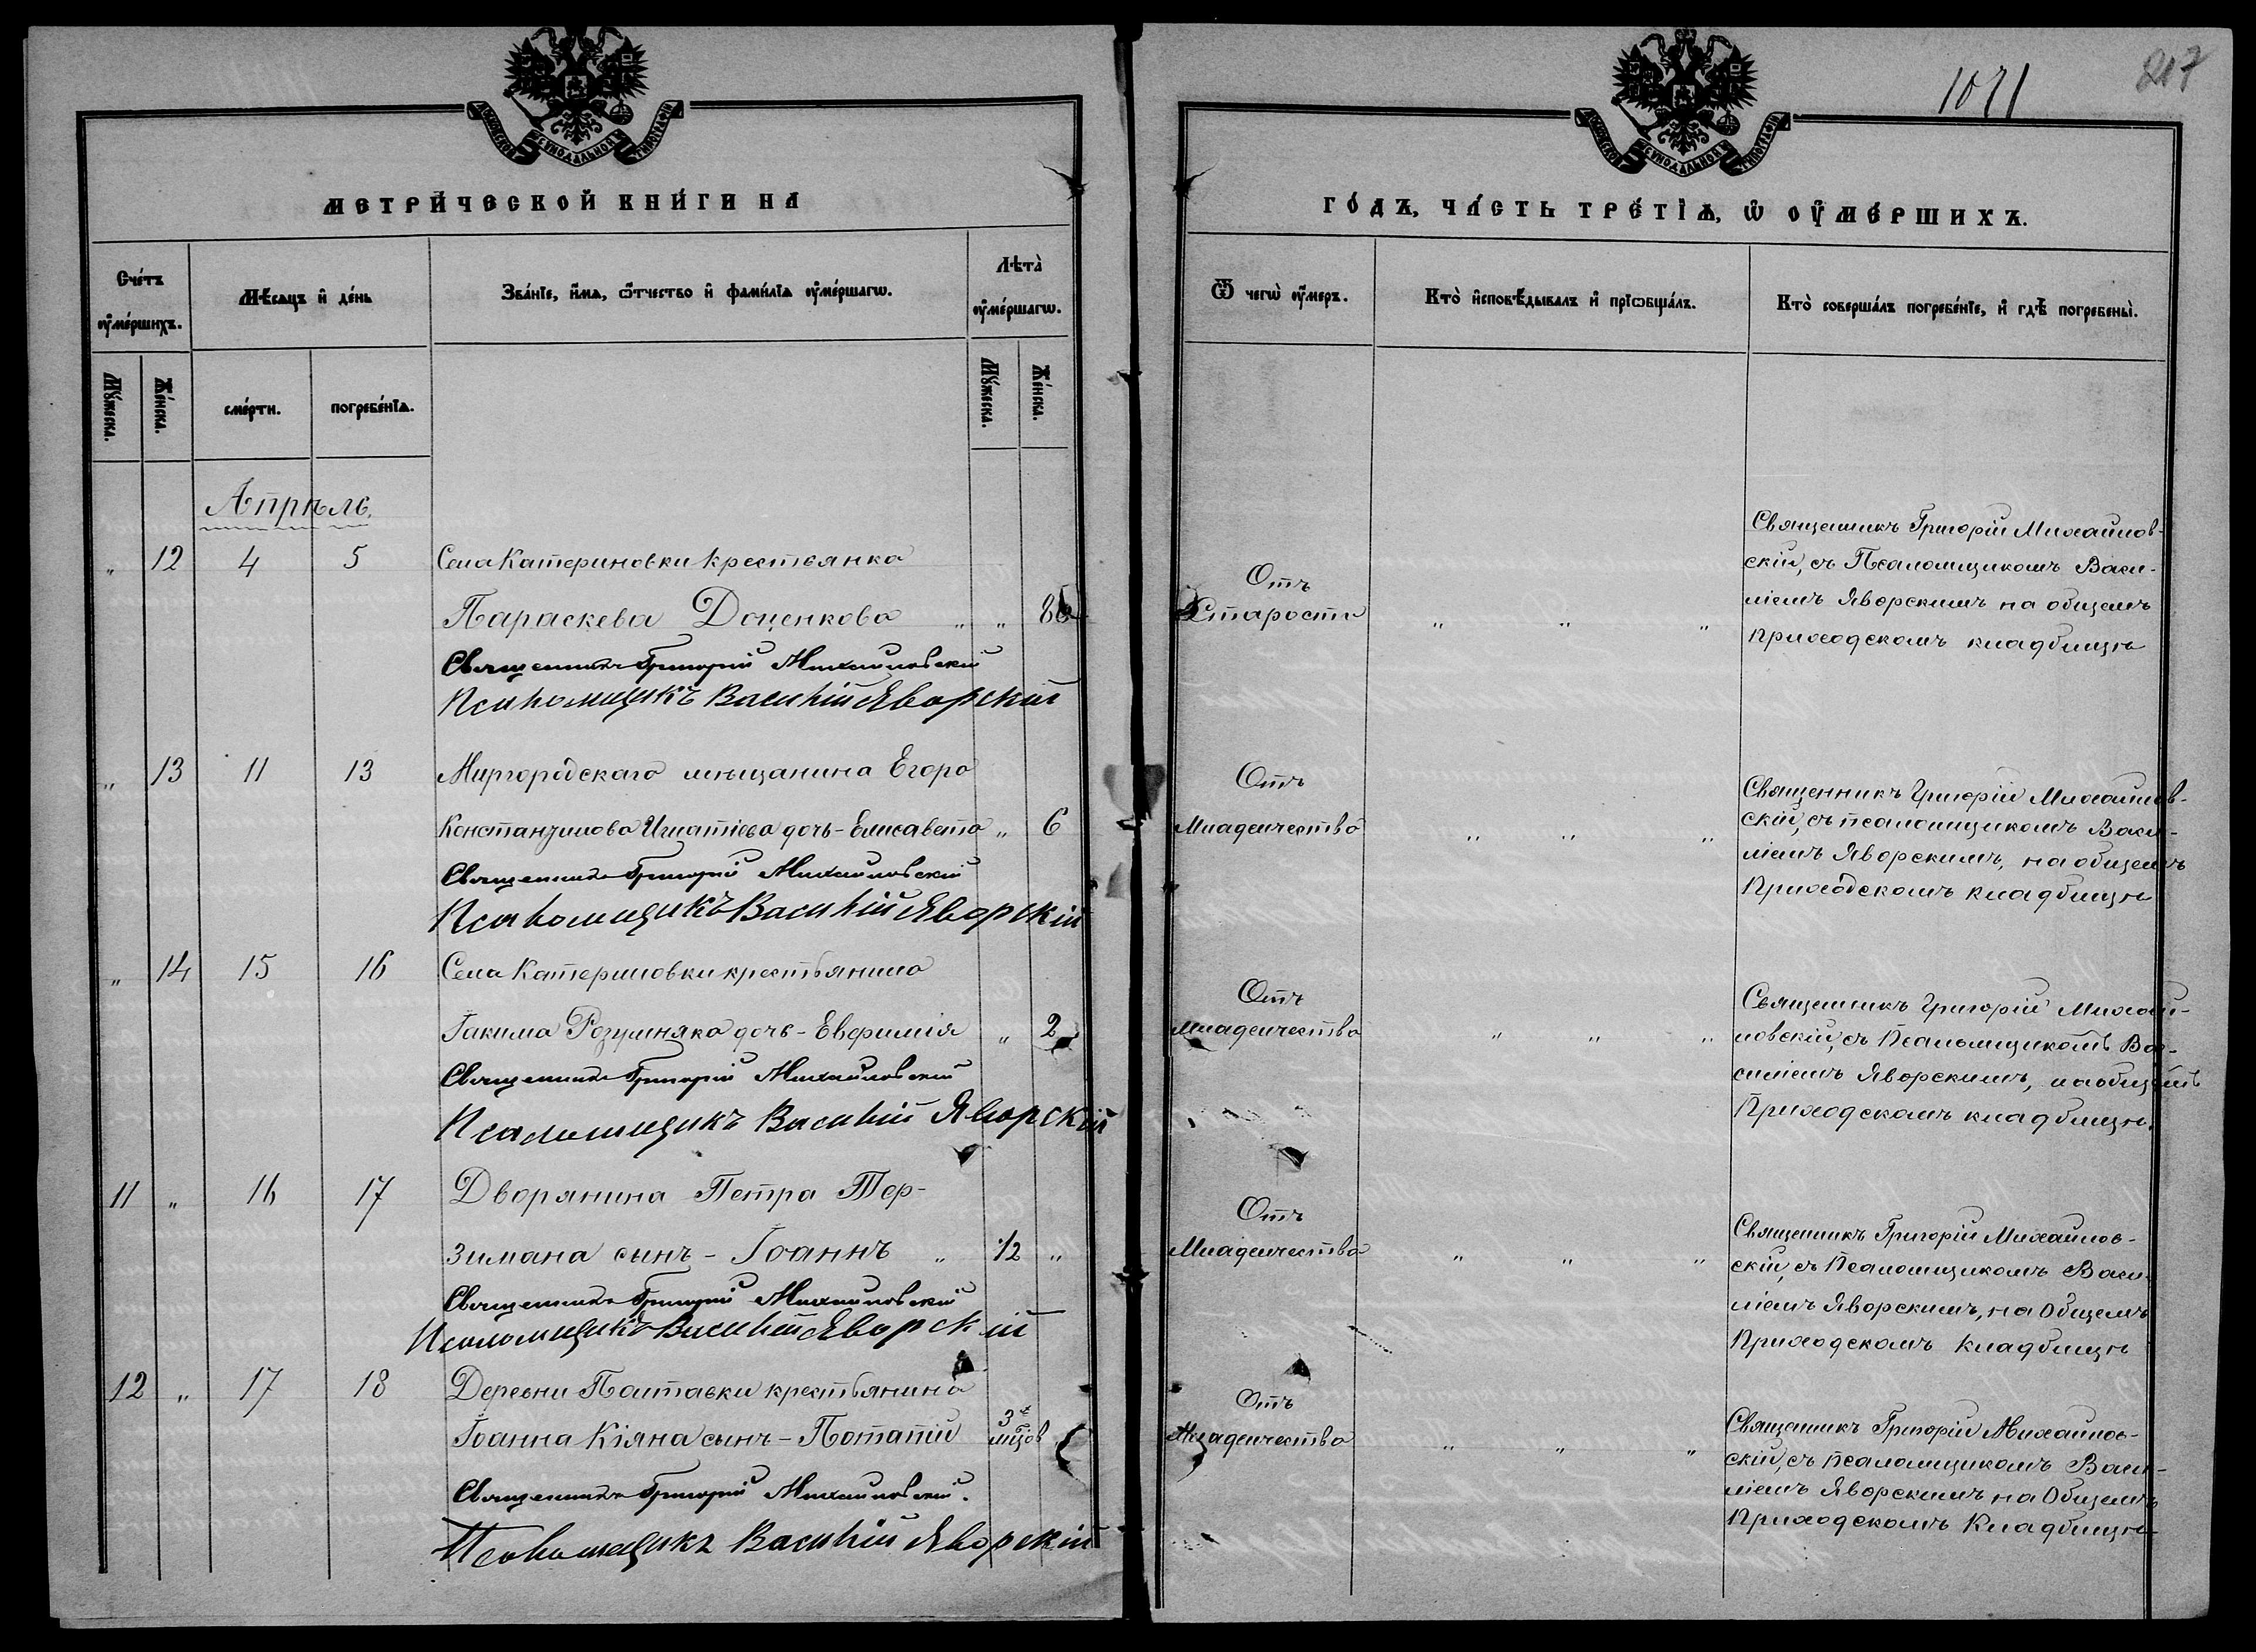 1071
217
МОСКОВСКОЙ СУНОДАЛЬНОЙ ТИПОГРАФІИ
МОСКОВСКОЙ СУНОДАЛЬНОЙ ТИПОГРАФІИ
МЕТРИ́ЧЕСКОЙ КНИ́ГИ НА
ГО́ДЪ, ЧА́СТЬ ТРЕ́ТІѦ, Ѡ҆ ОУ҆МЕ́РШИХЪ.
Сче́тъ оу҆ме́ршихъ.
Мѣ́сѧцъ и҆ де́нь
Зва́нїе, и҆́мѧ, ѻ҆́тчество и҆ фами́лїѧ оу҆ме́ршагѡ.
Лѣта̀ оу҆ме́ршагѡ.
Ѿ чегѡ̀ оу҆́меръ.
Кто̀ и҆сповѣ́дывалъ и҆ прїѡбща́лъ.
Кто̀ соверша́лъ погребе́нїе, и҆ гдѣ̀ погребены̀.
Мꙋ́жеска.
Же́нска.
сме́рти.
погребе́нїѧ.
Мꙋ́жеска.
Же́нска.
Апрѣль.
" 12 4 5 Села Катериновки крестьянка
Параскева Доценкова " " 86
Священникъ Григорій Михайловскій
Псаломщикъ Василій Яворскій
Отъ
Старости " " "
Священникъ Григорій Михайлов-
скій, съ Псаломщикомъ Васи-
ліемъ Яворскимъ на общемъ
приходскомъ кладбищѣ
" 13 11 13 Миргородскаго мѣщанина Егора
Константинова Игнатіева дочь - Елисавета " 6
Священникъ Григорій Михайловскій
Псаломщикъ Василій Яворскій
Отъ
Младенчества " " "
Священникъ Григорій Михайлов-
скій, съ псаломщикомъ Васи-
ліемъ Яворскимъ, на общемъ
Приходскомъ кладбищѣ
" 14 15 16 Села Катериновки крестьянина
Іакима Розумняка дочь - Евфимія " 2
Священникъ Григорій Михайловскій
Псаломщикъ Василій Яворскій
Отъ
младенчества " " "
Священникъ Григорій Михай-
ловскій, съ Псаломщикомъ Ва-
силіемъ Яворскимъ, на общемъ
Приходскомъ кладбищѣ.
11 " 16 17 Дворянина Петра Тер-
зимана сынъ - Іоаннъ " 1/2 "
Священникъ Григорій Михайловскій
Псаломщикъ Василій Яворскій
Отъ
Младенчества " " "
Священникъ Григорій Михайлов-
скій, съ Псаломщикомъ Васи-
ліемъ Яворскимъ, на Общемъ
Приходскомъ Кладбищѣ
12 " 17 18 Деревни Полтавки крестьянина
Іоанна Кіяна сынъ - Потапій 3х мцов
Священникъ Григорій Михайловскій.
Псаломщикъ Василій Яворскій
Отъ
Младенчества " " "
Священникъ Григорій Михайлов-
скій, съ псаломщикомъ Васи-
ліемъ Яворскимъ на Общемъ
Приходскомъ Кладбищѣ